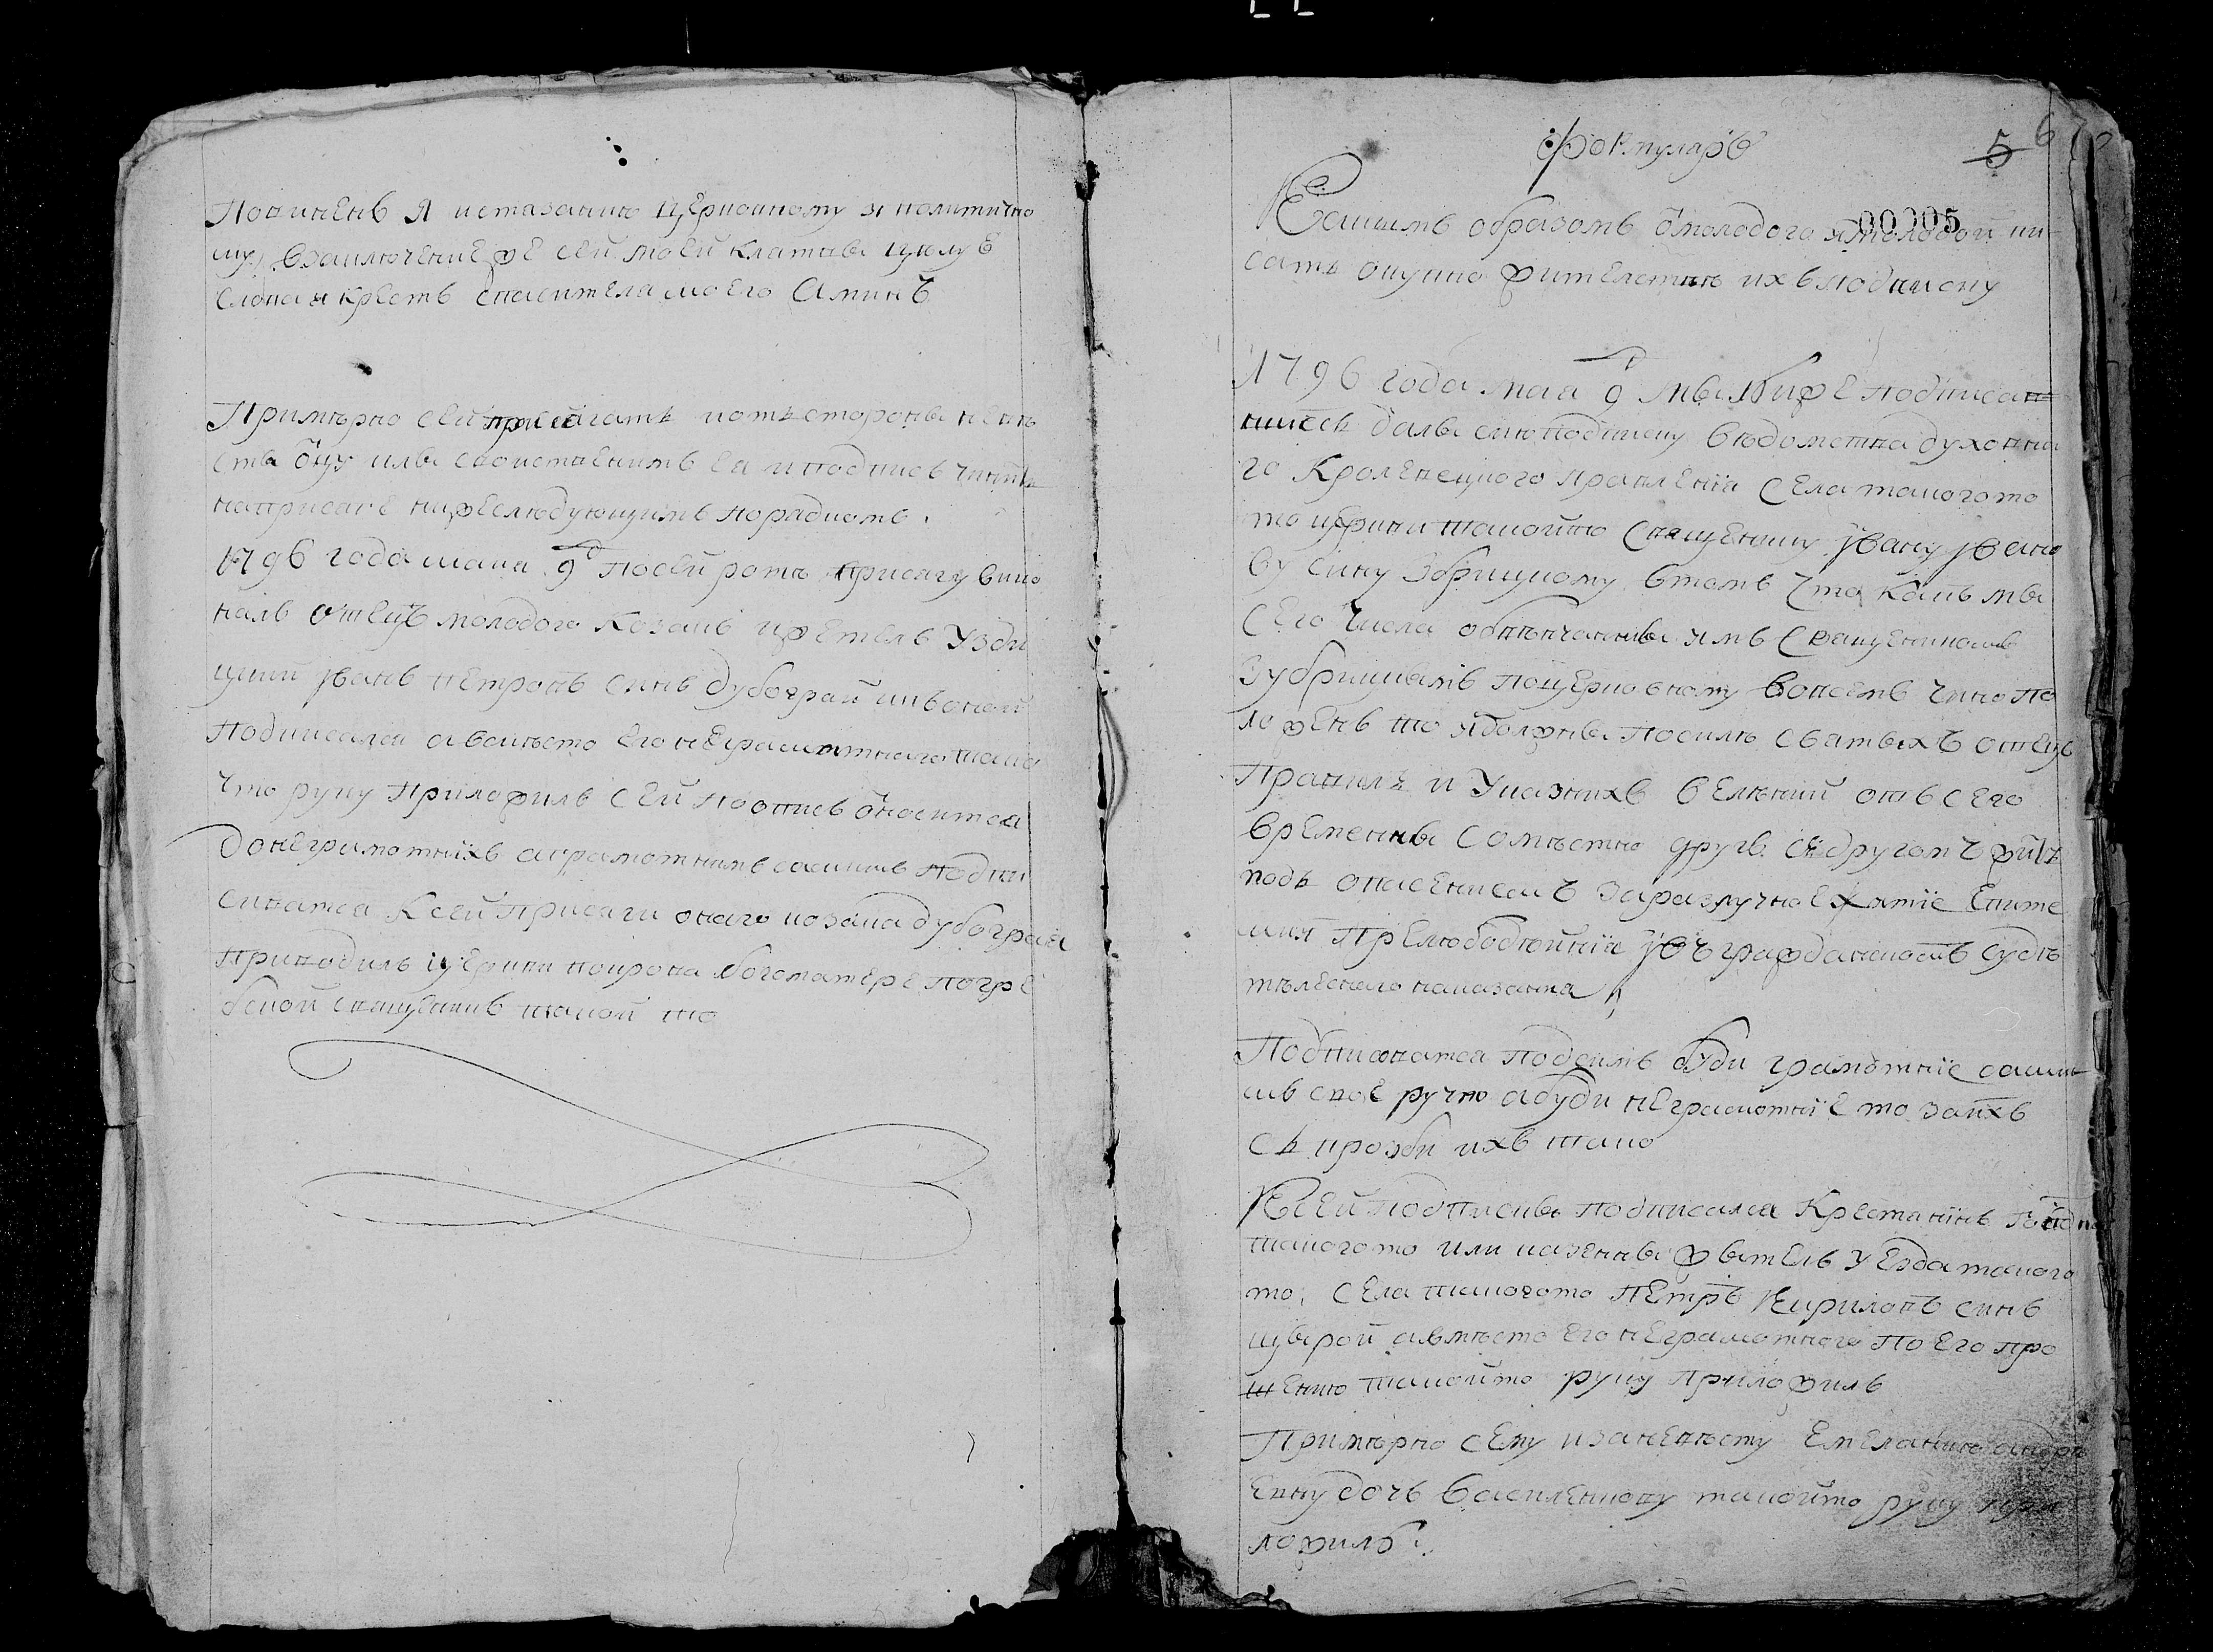 Повиненъ я истазанию церковному и политично
му, взаключение же сей моей клатвы целую
слова и крестъ спасителя моего Аминъ
Примерно сей присягать и отъ стороны невес
ты отцу или свойственимъ ея и подписъ чинить
на присяге нижеследующимъ порадкомъ.
1796 года маиа 9 д по сей роте присягу вико
налъ отецъ молодого козакъ жтель узди
цкий Іванъ петровъ синъ дубограй и въ оной
подписался а въместо его неграмотнаго тако
что руку приложилъ сей подписъ относится
до неграмотнихъ а грамотнимъ самимъ подпи
сиватся К сей присяги онаго козака дубограя
приводилъ церкви покрова богоматере погре
бской священикъ такой то
Формуляръ 5 6
Такимъ образомъ от молодого и молодой пи 00005
сать опукно жителства ихъ подписку
1796 года маиа 9 д мы ниже подписав
шиесь дали сию подписку ведомства духовна
го Кролевецкого правления села такогото
то церкви такойто священику Івану Івано
ву сину Зубрицкому втомъ что какъ мы
Сего числа обвенчанны имъ священикомъ
Зубрицкымъ по церковному вовсемъ чинопо
ложенъ то и должны посиле святыхъ отецъ
Правилъ и Указнихъ велений отъ сего
времены совместно другъ съ другомъ жить
подъ опасениемъ за разлучное житие епите
мии прелюбодейния въ гражданскомъ суде
телеснаго наказания
Подписиватся подсимъ буди грамотние сами
въ своеручно а буди неграмотние то за ихъ
съ прозби ихъ тако
К сей подписки подписался Крестанинъ
такогото или казенны жытель уезда такого
то, села такогото Петръ Кириловъ синъ
цырой а въместо его неграмотнаго по его про
шению такойто руку приложилъ
Примерно сему и за невесту Емеланию андре
евну дочъ василенкову такойто руку при
ложилъ.